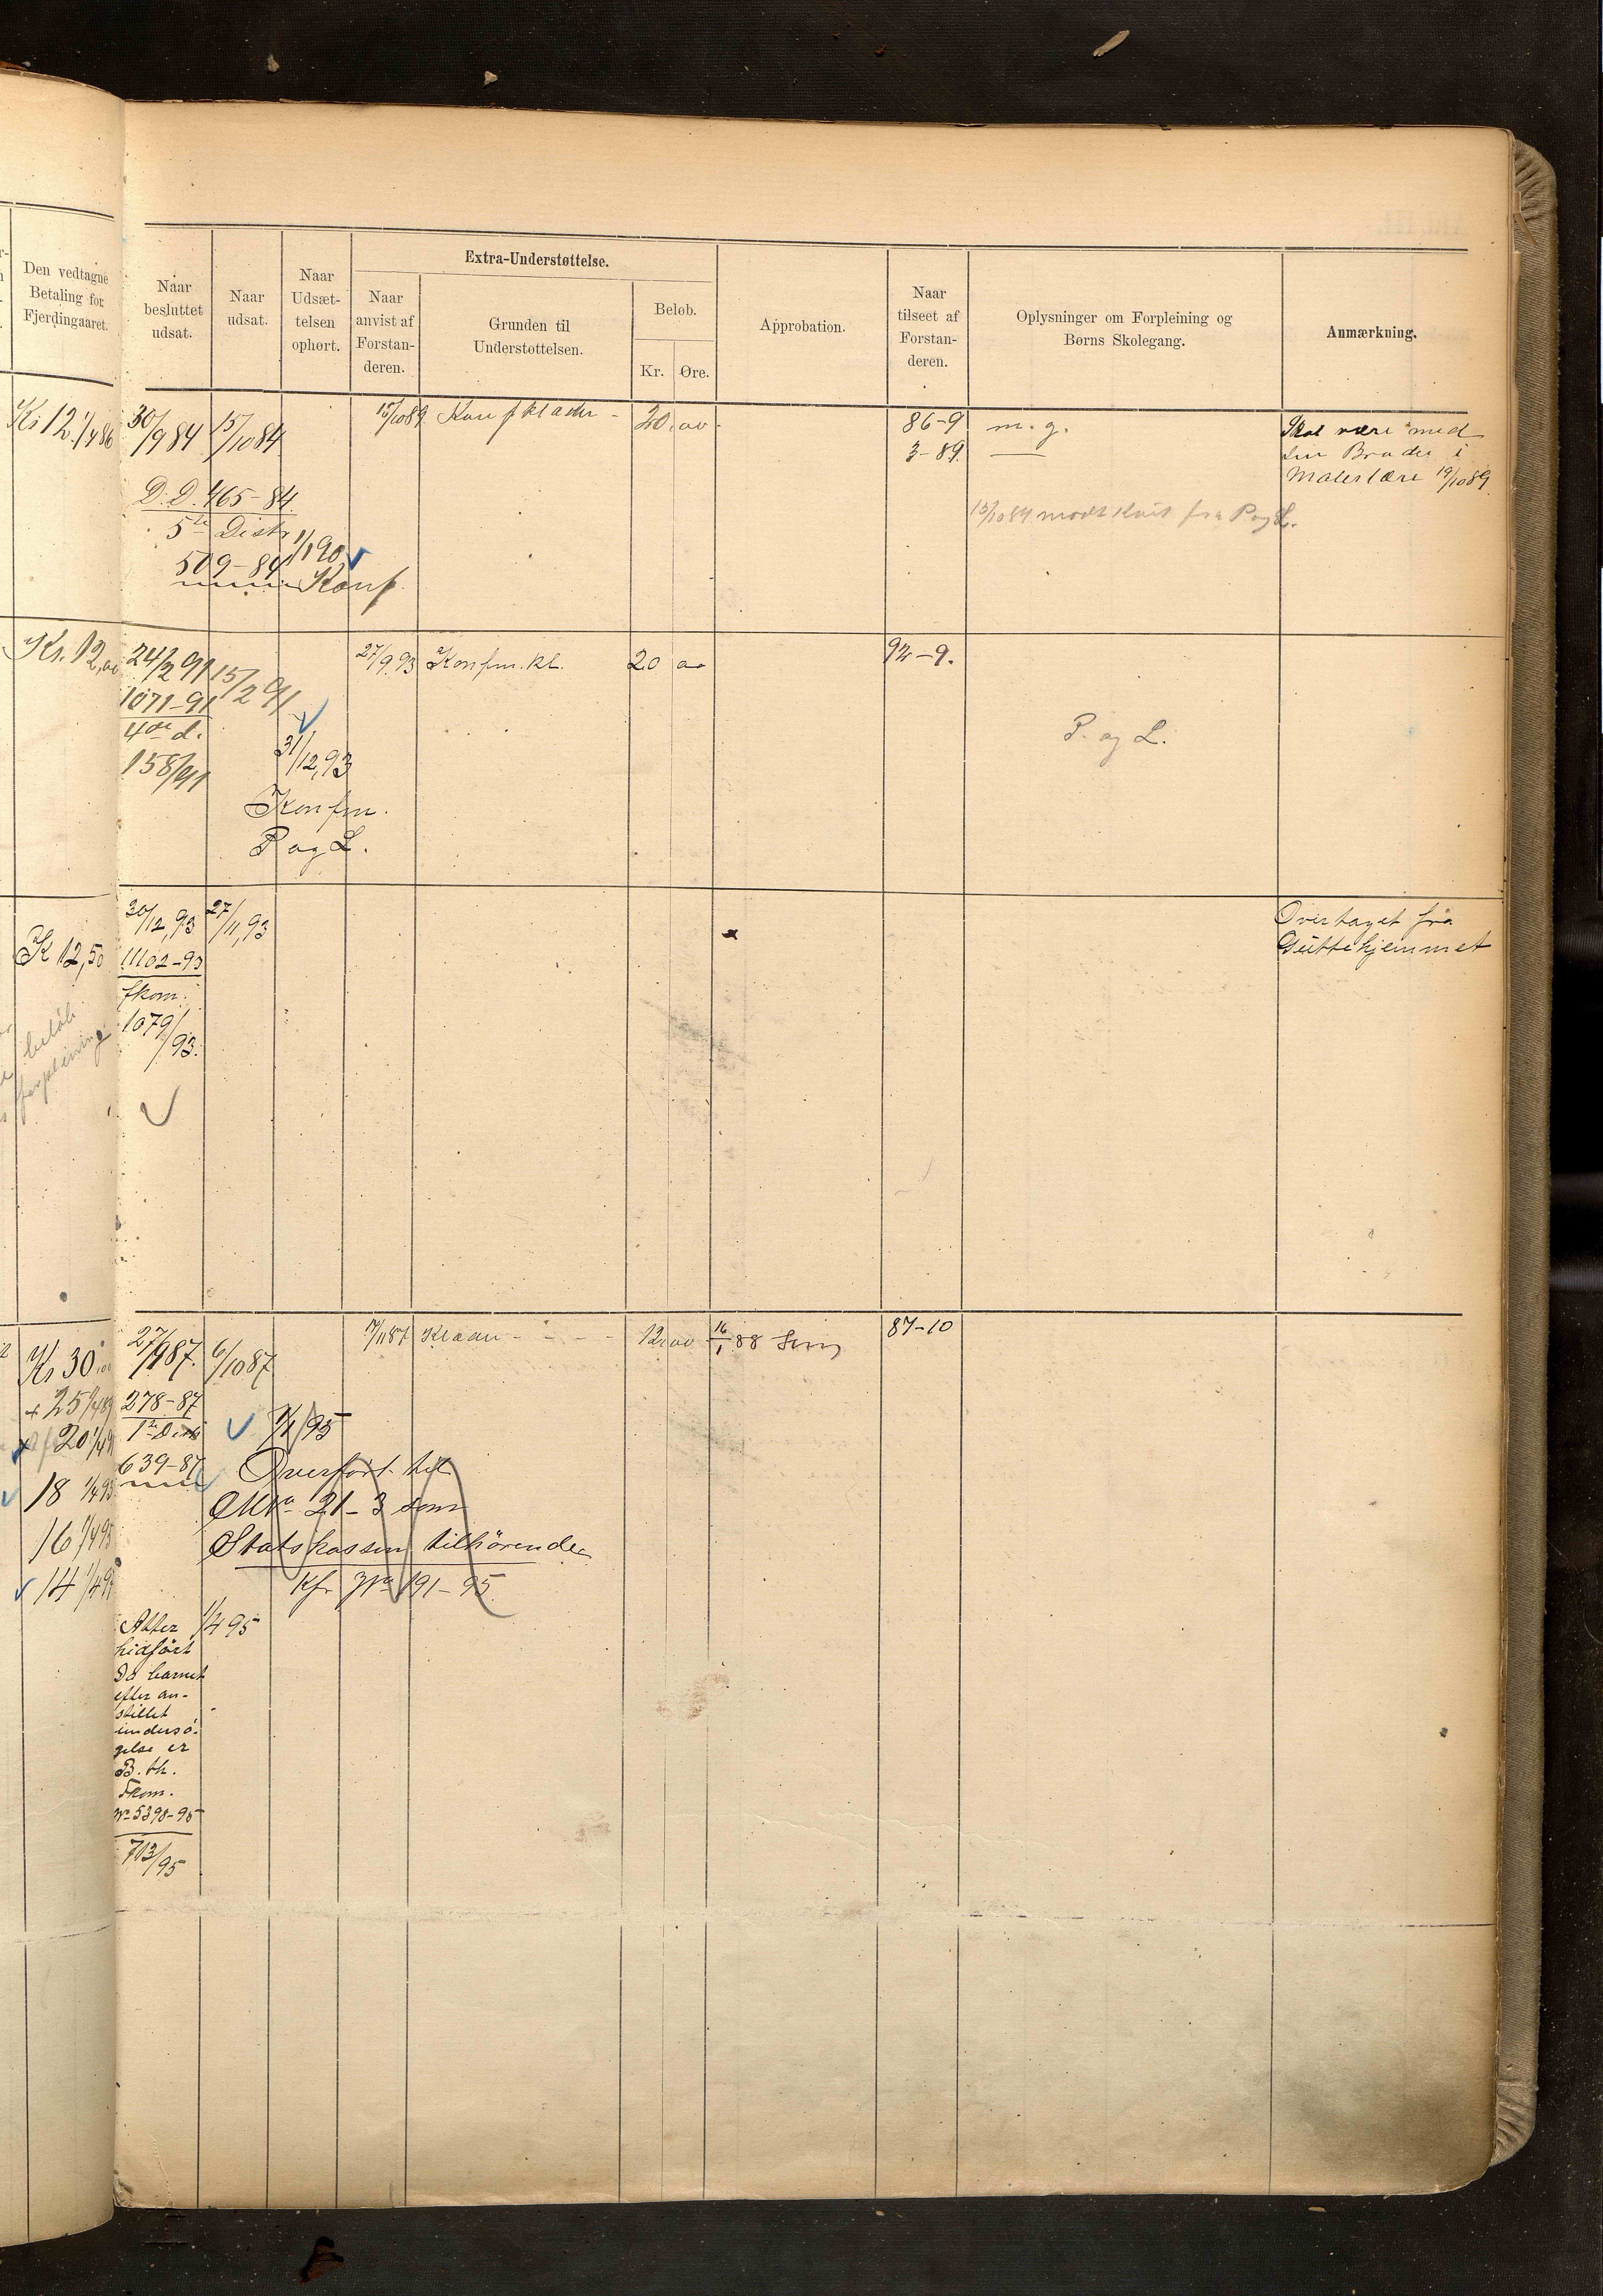 Den vedtagne
Betaling for
Fjerdingaaret.
Naar
besluttet
udsat.
Naar
udsat.
Naar
Udsæt-
telsen
ophørt.
Extra-Understøttelse.
Naar
anvist af
Forstan-
deren.
Grunden til
Understøttelsen.
Beløb.
Kr.
Øre.
Approbation.
Naar
tilseet af
Forstan-
deren.
Oplysninger om Forpleining og
Børns Skolegang.
Anmærkning.
Kr 12. 1/4 86
30/9 84
15/10 84
D. D. 465-84
5te Distr
509-84
1/1 90
Konf.
15/10 89
Konfklæder -
20 00
86-9
3-89
m. g.
15/10 89 modt kvit fra P og L.
Skal være med
sin Broder i
Malerlære 19/10 89
Kr. 12,00
24/2 91
15/2 91
1071-91
4de d.
158/91
31/12,93
Konfm.
P og L.
27/9 93
Konfm. kl.
20 00
92-9.
P. og L.
K 12,50
beløb
forpleining
30/12,93
27/11,93
11102-93
fkom.
1079/93.
Overtaget fra
Guttehjemmet
Kr 30,00
+ 25 1/4 89
20 1/4 91
18 1/4 93
16 1/4 95
14 1/4 97
27/9 87.
6/10 87
278-87
1te Dist
639-87
1/1 95
Overført til
M No 21-3 som
Statskassen tilhørende
Kfr No 191-95
17/11 87
Klæder - - - -
12 00
16/1 88
87-10
Atter 1/4 95
hidført
da barnet
efter an-
stillet
undersø-
gelse er
B. th.
Fkom.
No 5390-95
713/95